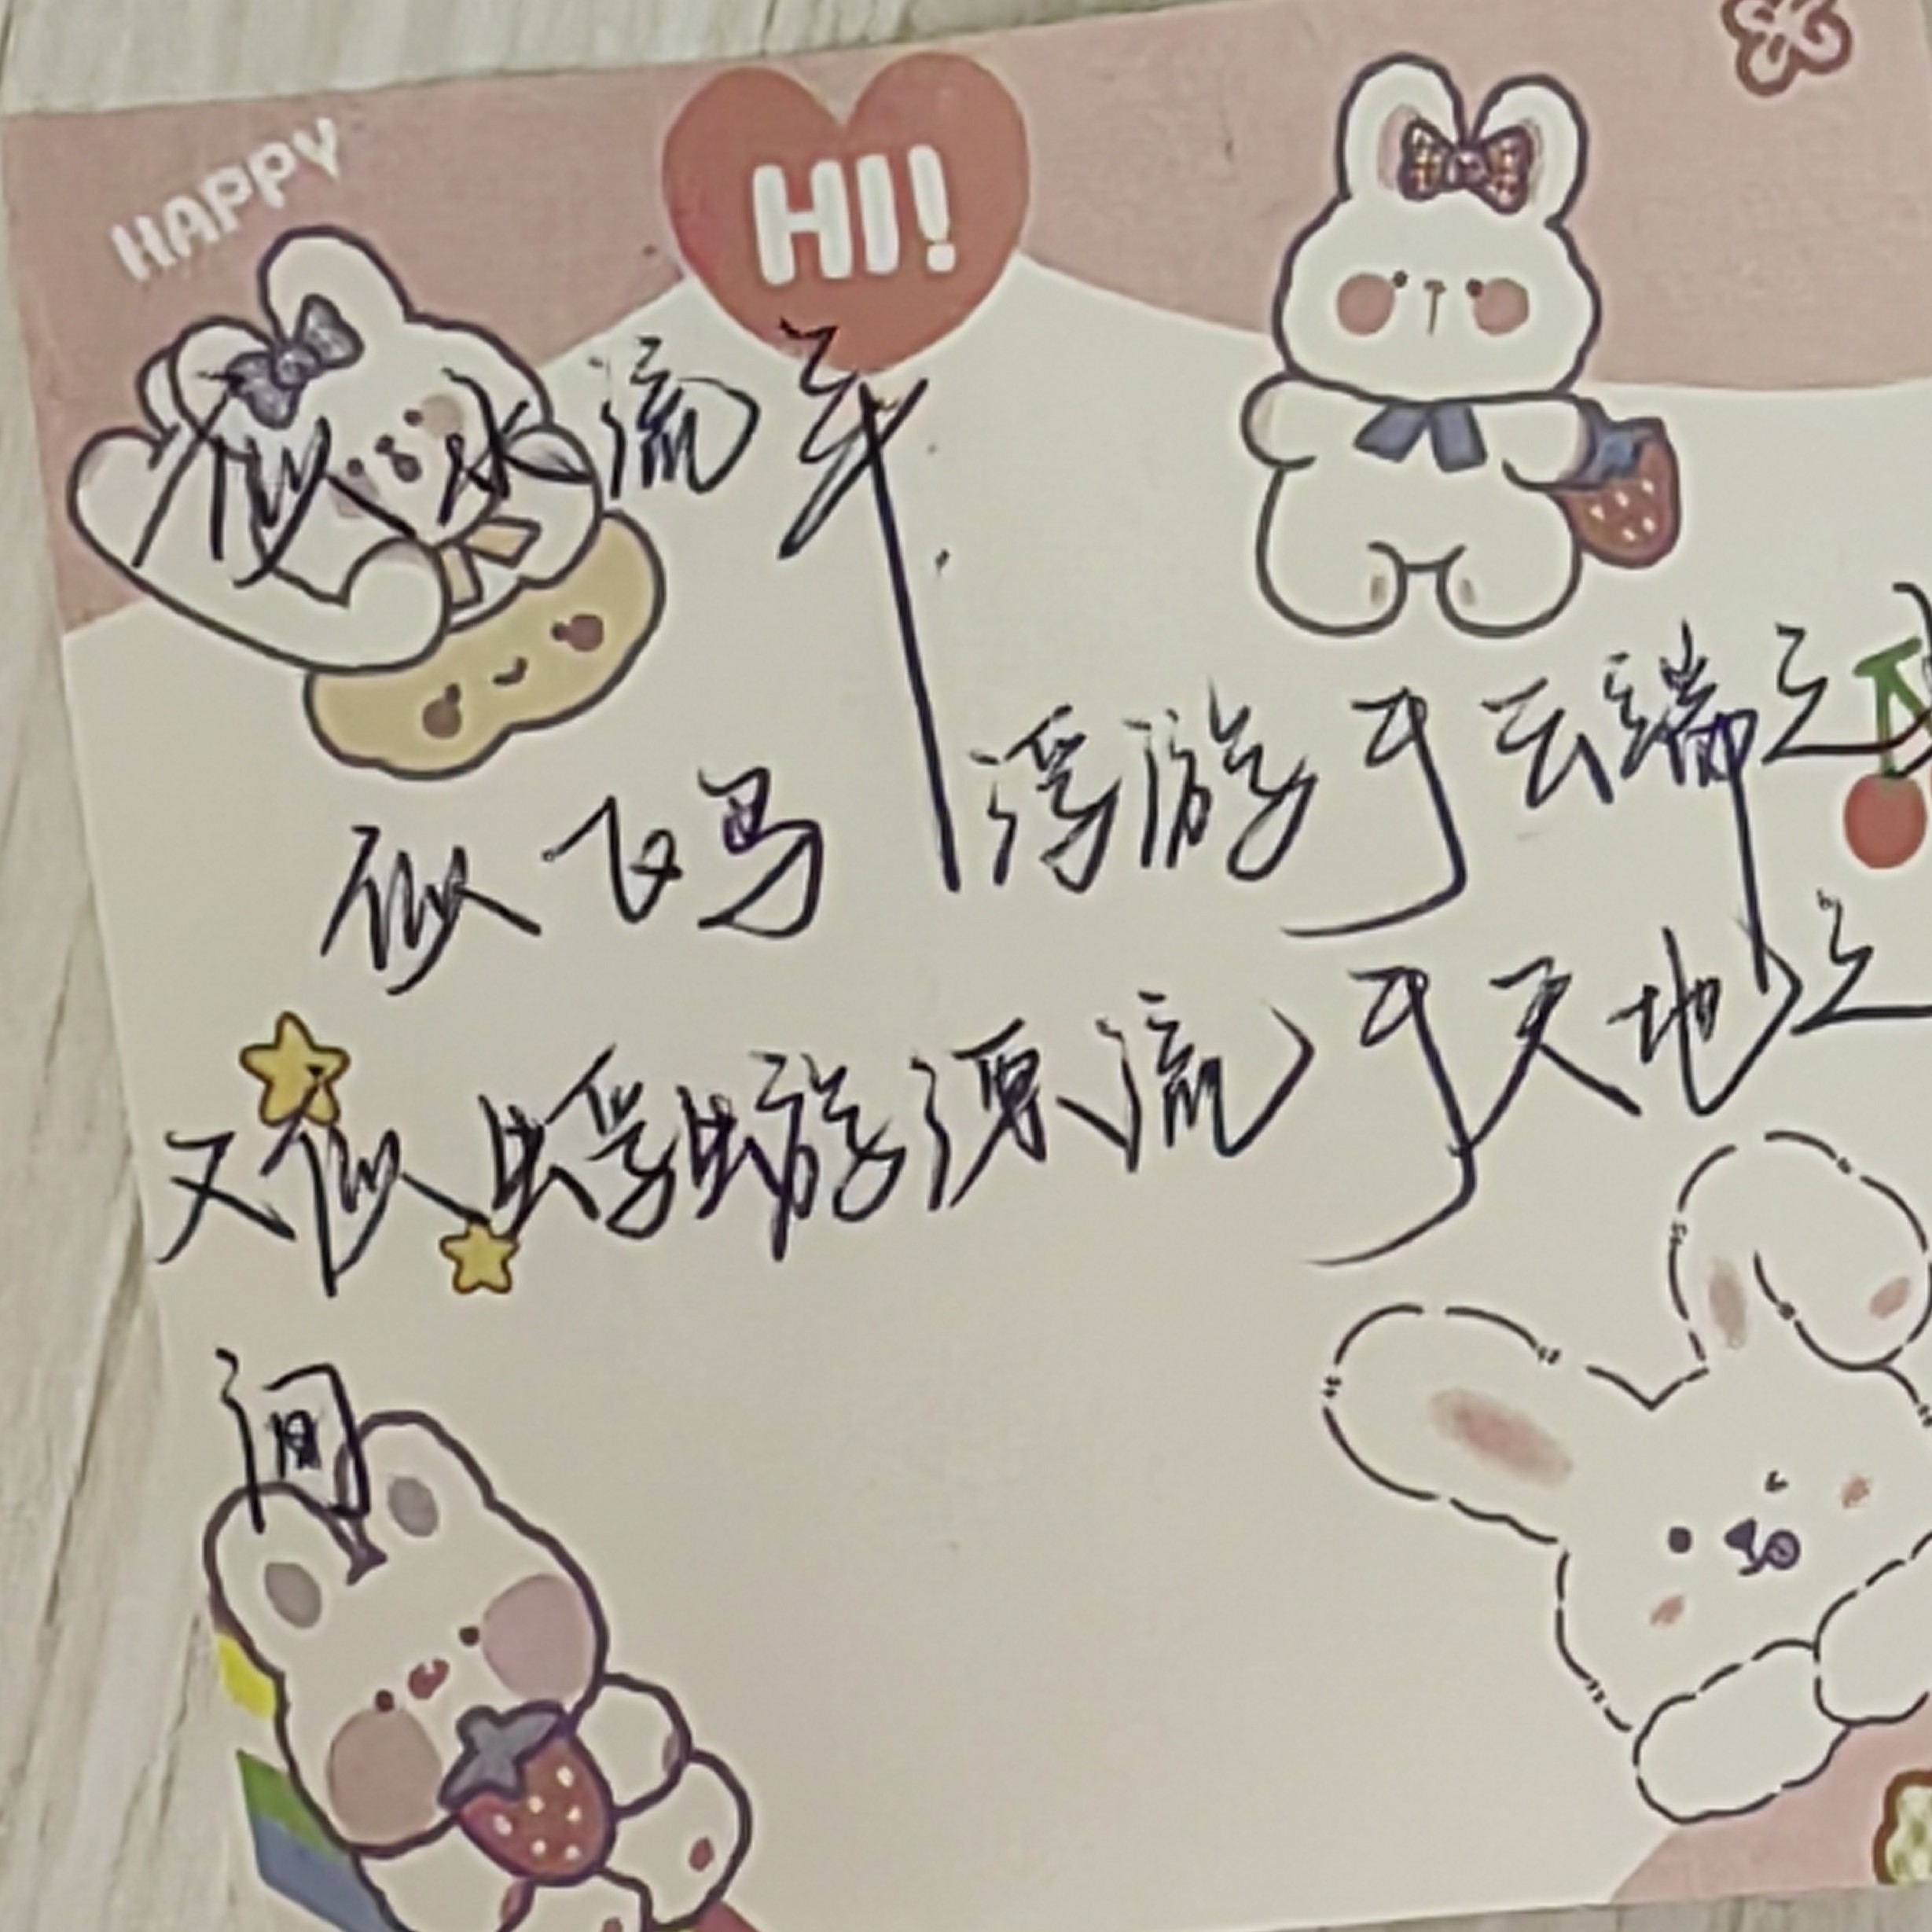 HAPPY
HI!
似水流年
似飞马浮游于云端之
又似蜉蝣漂流于天地之
间